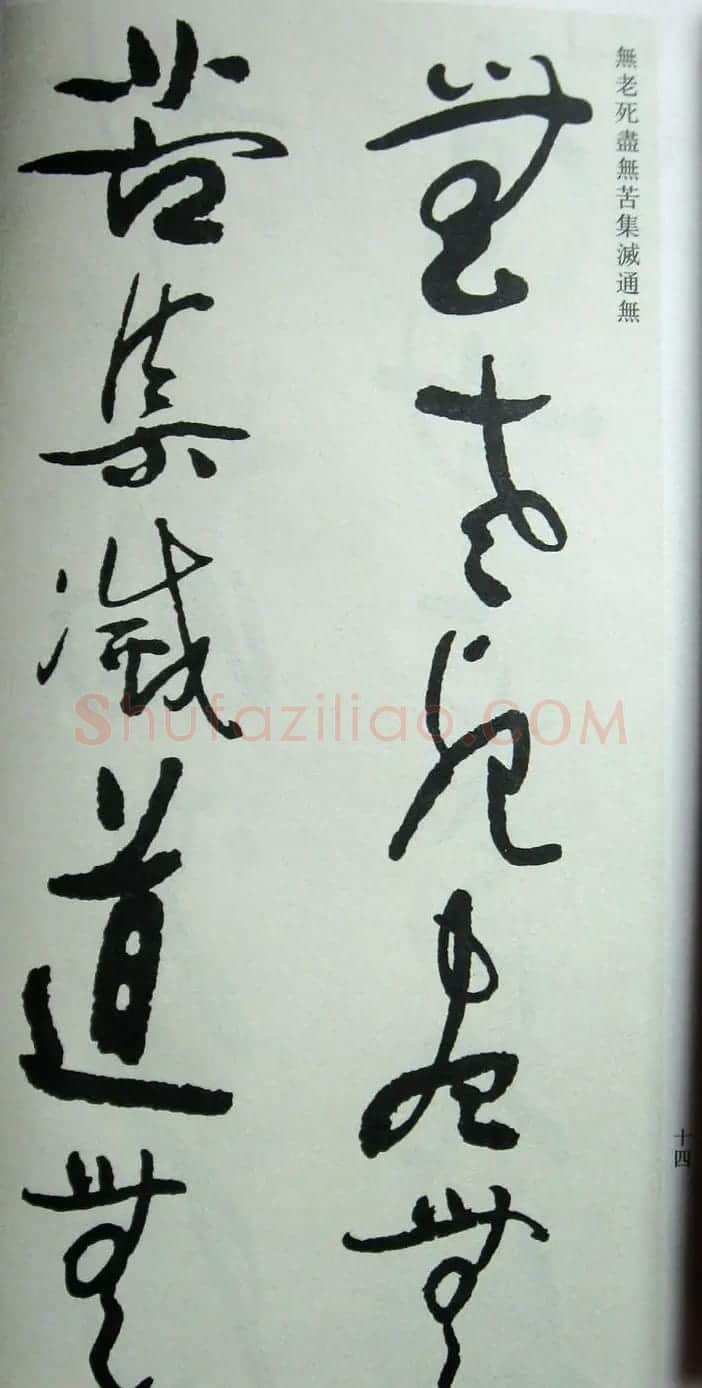 無老死盡無苦集滅通無
無老死盡無
苦集滅道無
十四
Shufaziliao.COM